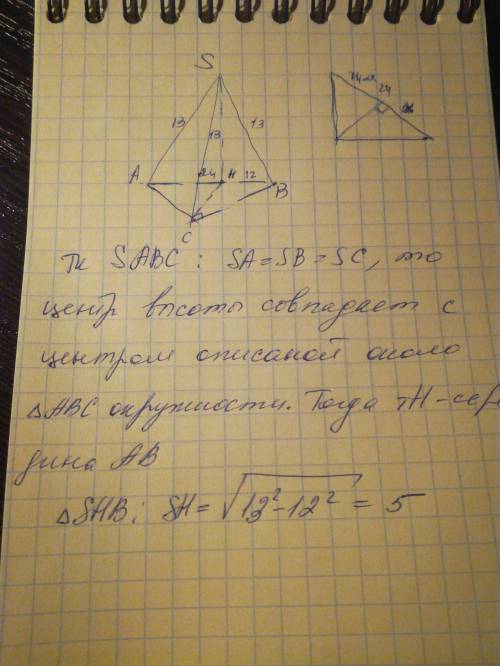 S
13
13
13
24
24
A
24
H
12
B
C
Тк SABC: SA=SB=SC, то
центр высоты совпадает с
центром описаной около
△ABC окружности. Тогда тH-сере
дина AB
△SHB: SH=√13²-12² = 5